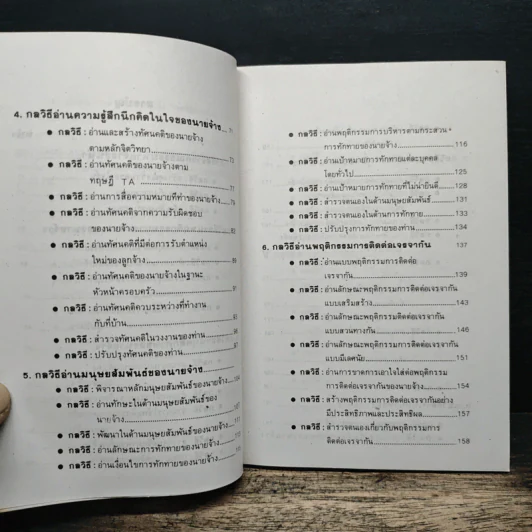 4. กลวิธีอ่านความรู้สึกนึกคิดในใจของนายจ้าง 71
● กลวิธี : อ่านและสร้างทัศนคติของนายจ้าง
ตามหลักจิตวิทยา
● กลวิธี : อ่านทัศนคติของนายจ้างตาม
ทฤษฎี TA 77
● กลวิธี : อ่านการสื่อความหมายที่ทำของนายจ้าง 79
● กลวิธี : อ่านทัศนคติจากความรับผิดชอบ
ของนายจ้าง 83
● กลวิธี : อ่านทัศนคติที่มีต่อการรับตำแหน่ง
ใหม่ของลูกจ้าง
● กลวิธี : อ่านทัศนคติของนายจ้างในฐานะ
หัวหน้าครอบครัว
● กลวิธี : อ่านทัศนคติควบระหว่างที่ทำงาน
กับที่บ้าน
● กลวิธี : สำรวจทัศนคติในวงงานของท่าน
● กลวิธี : ปรับปรุงทัศนคติของท่าน
5. กลวิธีอ่านมนุษยสัมพันธ์ของนายจ้าง
● กลวิธี : พิจารณาหลักมนุษยสัมพันธ์ของนายจ้าง 104
● กลวิธี : อ่านทักษะในด้านมนุษยสัมพันธ์ของ
นายจ้าง
● กลวิธี : พัฒนาในด้านมนุษยสัมพันธ์ของนายจ้าง
● กลวิธี : อ่านลักษณะการทักทายของนายจ้าง
● กลวิธี : อ่านเงื่อนไขการทักทายของนายจ้าง
● กลวิธี : อ่านพฤติกรรมการบริหารตามกระสวน
การทักทายของนายจ้าง 116
● กลวิธี : อ่านเป้าหมายการทักทายแต่ละบุคคล
โดยทั่วไป 125
● กลวิธี : อ่านเป้าหมายการทักทายที่ไม่น่ายินดี 128
● กลวิธี : สำรวจตนเองในด้านมนุษยสัมพันธ์ 131
● กลวิธี : สำรวจตนเองในด้านการทักทาย 133
● กลวิธี : ปรับปรุงการทักทายของท่าน 134
6. กลวิธีอ่านพฤติกรรมการติดต่อเจรจากัน 137
● กลวิธี : อ่านแบบพฤติกรรมการติดต่อ
เจรจากัน 139
● กลวิธี : อ่านลักษณะพฤติกรรมการติดต่อเจรจากัน
แบบเสริมสร้าง 143
● กลวิธี : อ่านลักษณะพฤติกรรมติดต่อเจรจากัน
แบบสวนทางกัน 146
● กลวิธี : อ่านลักษณะพฤติกรรมการติดต่อเจรจากัน
แบบมีเลศนัย 151
● กลวิธี : อ่านการขาดการเอาใจใส่ต่อพฤติกรรม
การติดต่อเจรจากันของนายจ้าง 154
● กลวิธี : สร้างพฤติกรรมการติดต่อเจรจากันอย่าง
มีประสิทธิภาพและประสิทธิผล 157
● กลวิธี : สำรวจตนเองเกี่ยวกับพฤติกรรมการ
ติดต่อเจรจากัน 158